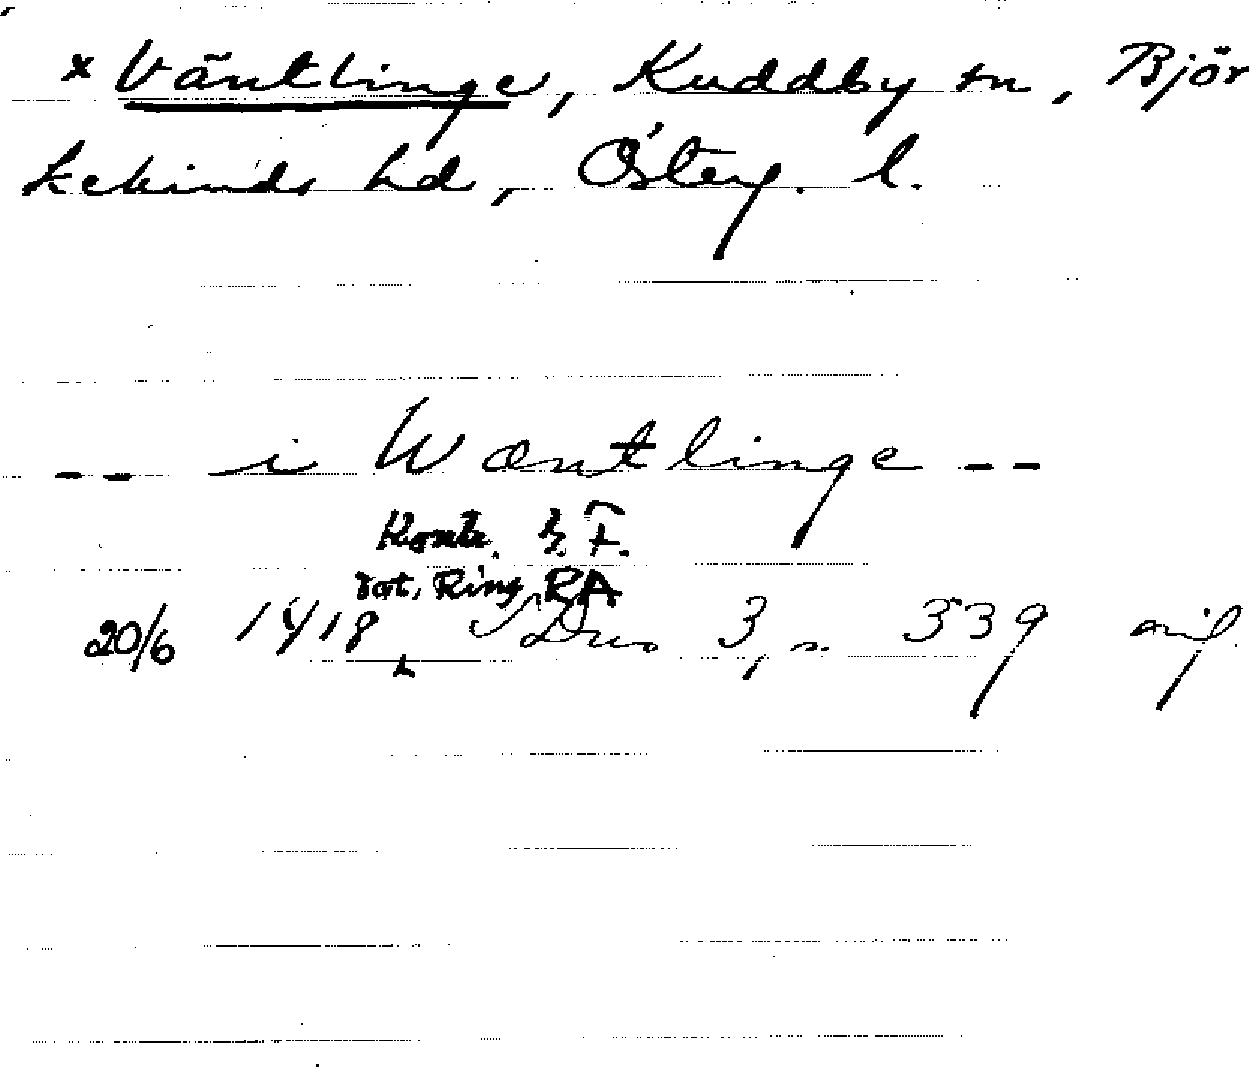 x Väntlinge, Kuddby sn, Björ
kekinds hd, Österg. l.
-- i Wæntlinge --
Kontr. h. F.
Fot. Ring, RA
20/6 1418 SDns 3, s. 339 orig.